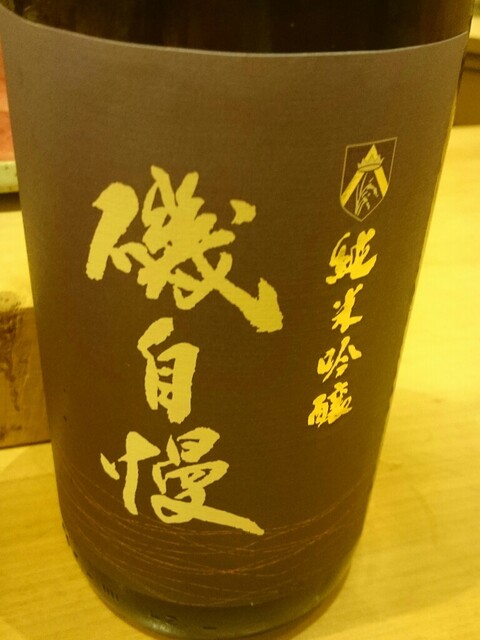 純米吟醸
磯自慢